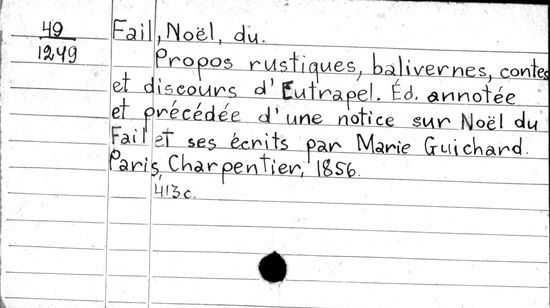 49
1249
Fail, Noël, du.
Propos rustiques, balivernes, contes
et discours d'Eutrapel. Éd. annotée
et précédée d'une notice sur Noël du
Fail et ses écrits par Marie Guichard.
Paris, Charpentier, 1856.
413c.